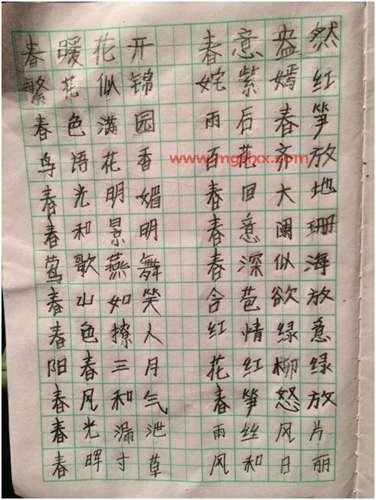 春暖花开 春意盎然
繁花似锦 姹紫嫣红
春色满园 雨后春笋
鸟语花香 百花齐放
www.mgpxx.com
春光明媚 春回大地
春和景明 春意阑珊
莺歌燕舞 春深似海
春山如笑 含苞欲放
春色撩人 红情绿意
阳春三月 花红柳绿
春风和气 春笋怒放
春光漏泄 雨丝风片
春晖寸草 风和日丽